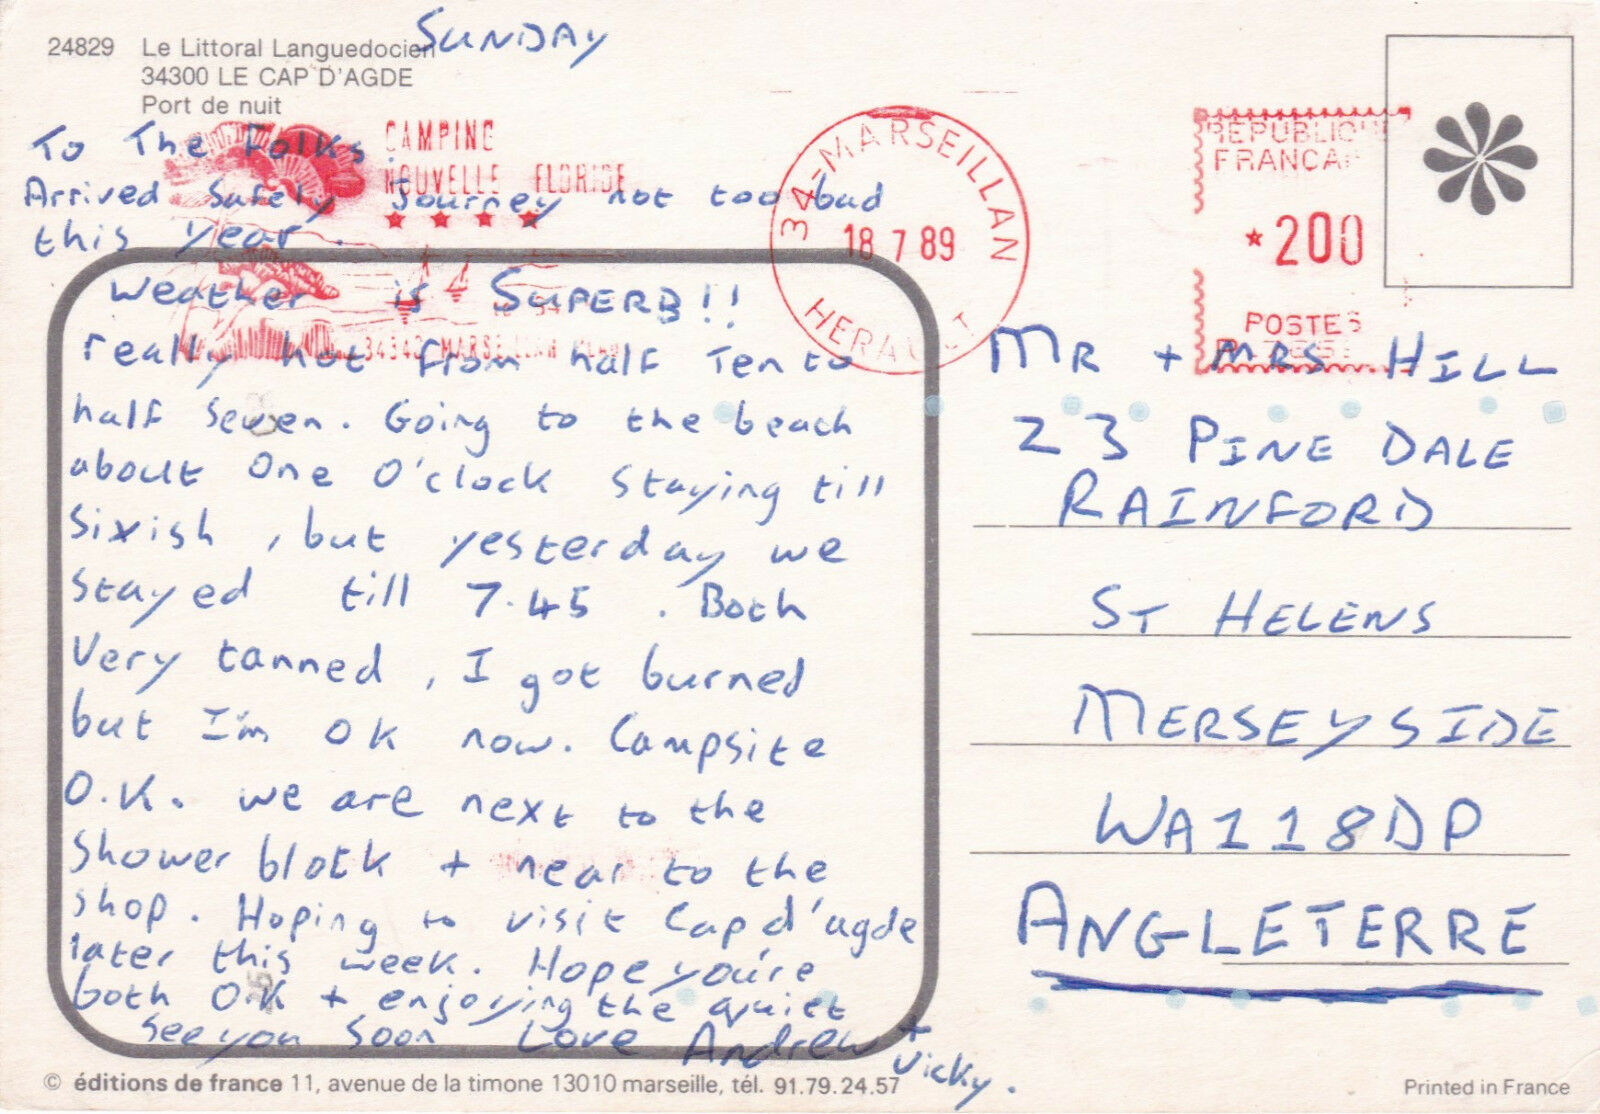 SUNDAY
24829 Le Littoral Languedocien
34300 LE CAP D'AGDE
Port de nuit
To The Folks.
Arrived Safely Journey not too bad
this year.
Weather is SUPERB!!
really hot from half Ten to
half seven. Going to the beach
about One O'clock staying till
sixish, but yesterday we
stayed till 7.45. Both
Very tanned, I got burned
but I'm OK now. Campsite
O.K. we are next to the
Shower block + near to the
shop. Hoping to visit Cap d'agde
later this week. Hope you're
both O.K + enjoying the quiet
See you Soon Love Andrew +
Vicky.
CAMPING
NOUVELLE FLORIDE
★ ★ ★ ★
34340 MARSEILLAN
34-MARSEILLAN
18 7 89
HERAULT
REPUBLIQUE
FRANCAI
★200
POSTES
MR + MRS HILL
23 PINE DALE
RAINFORD
ST HELENS
MERSEYSIDE
WA11 8DP
ANGLETERRE
© éditions de france 11, avenue de la timone 13010 marseille, tél. 91.79.24.57
Printed in France